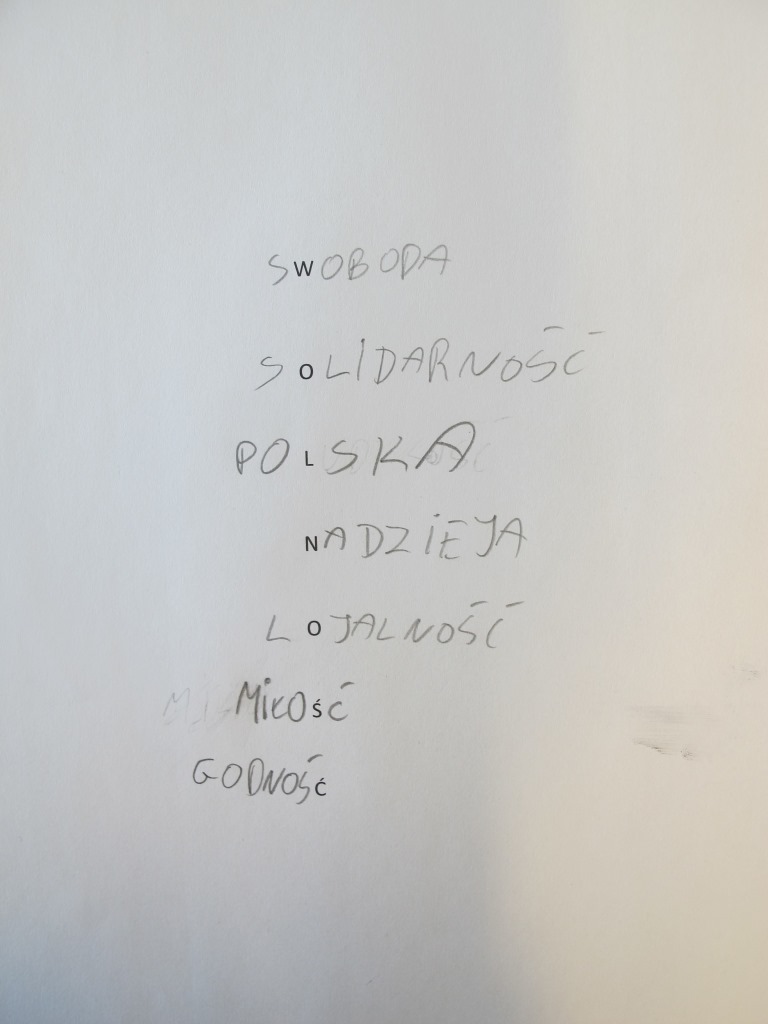 SWOBODA
SOLIDARNOŚĆ
POLSKA
NADZIEJA
LOJALNOŚĆ
MIŁOŚĆ
GODNOŚĆ